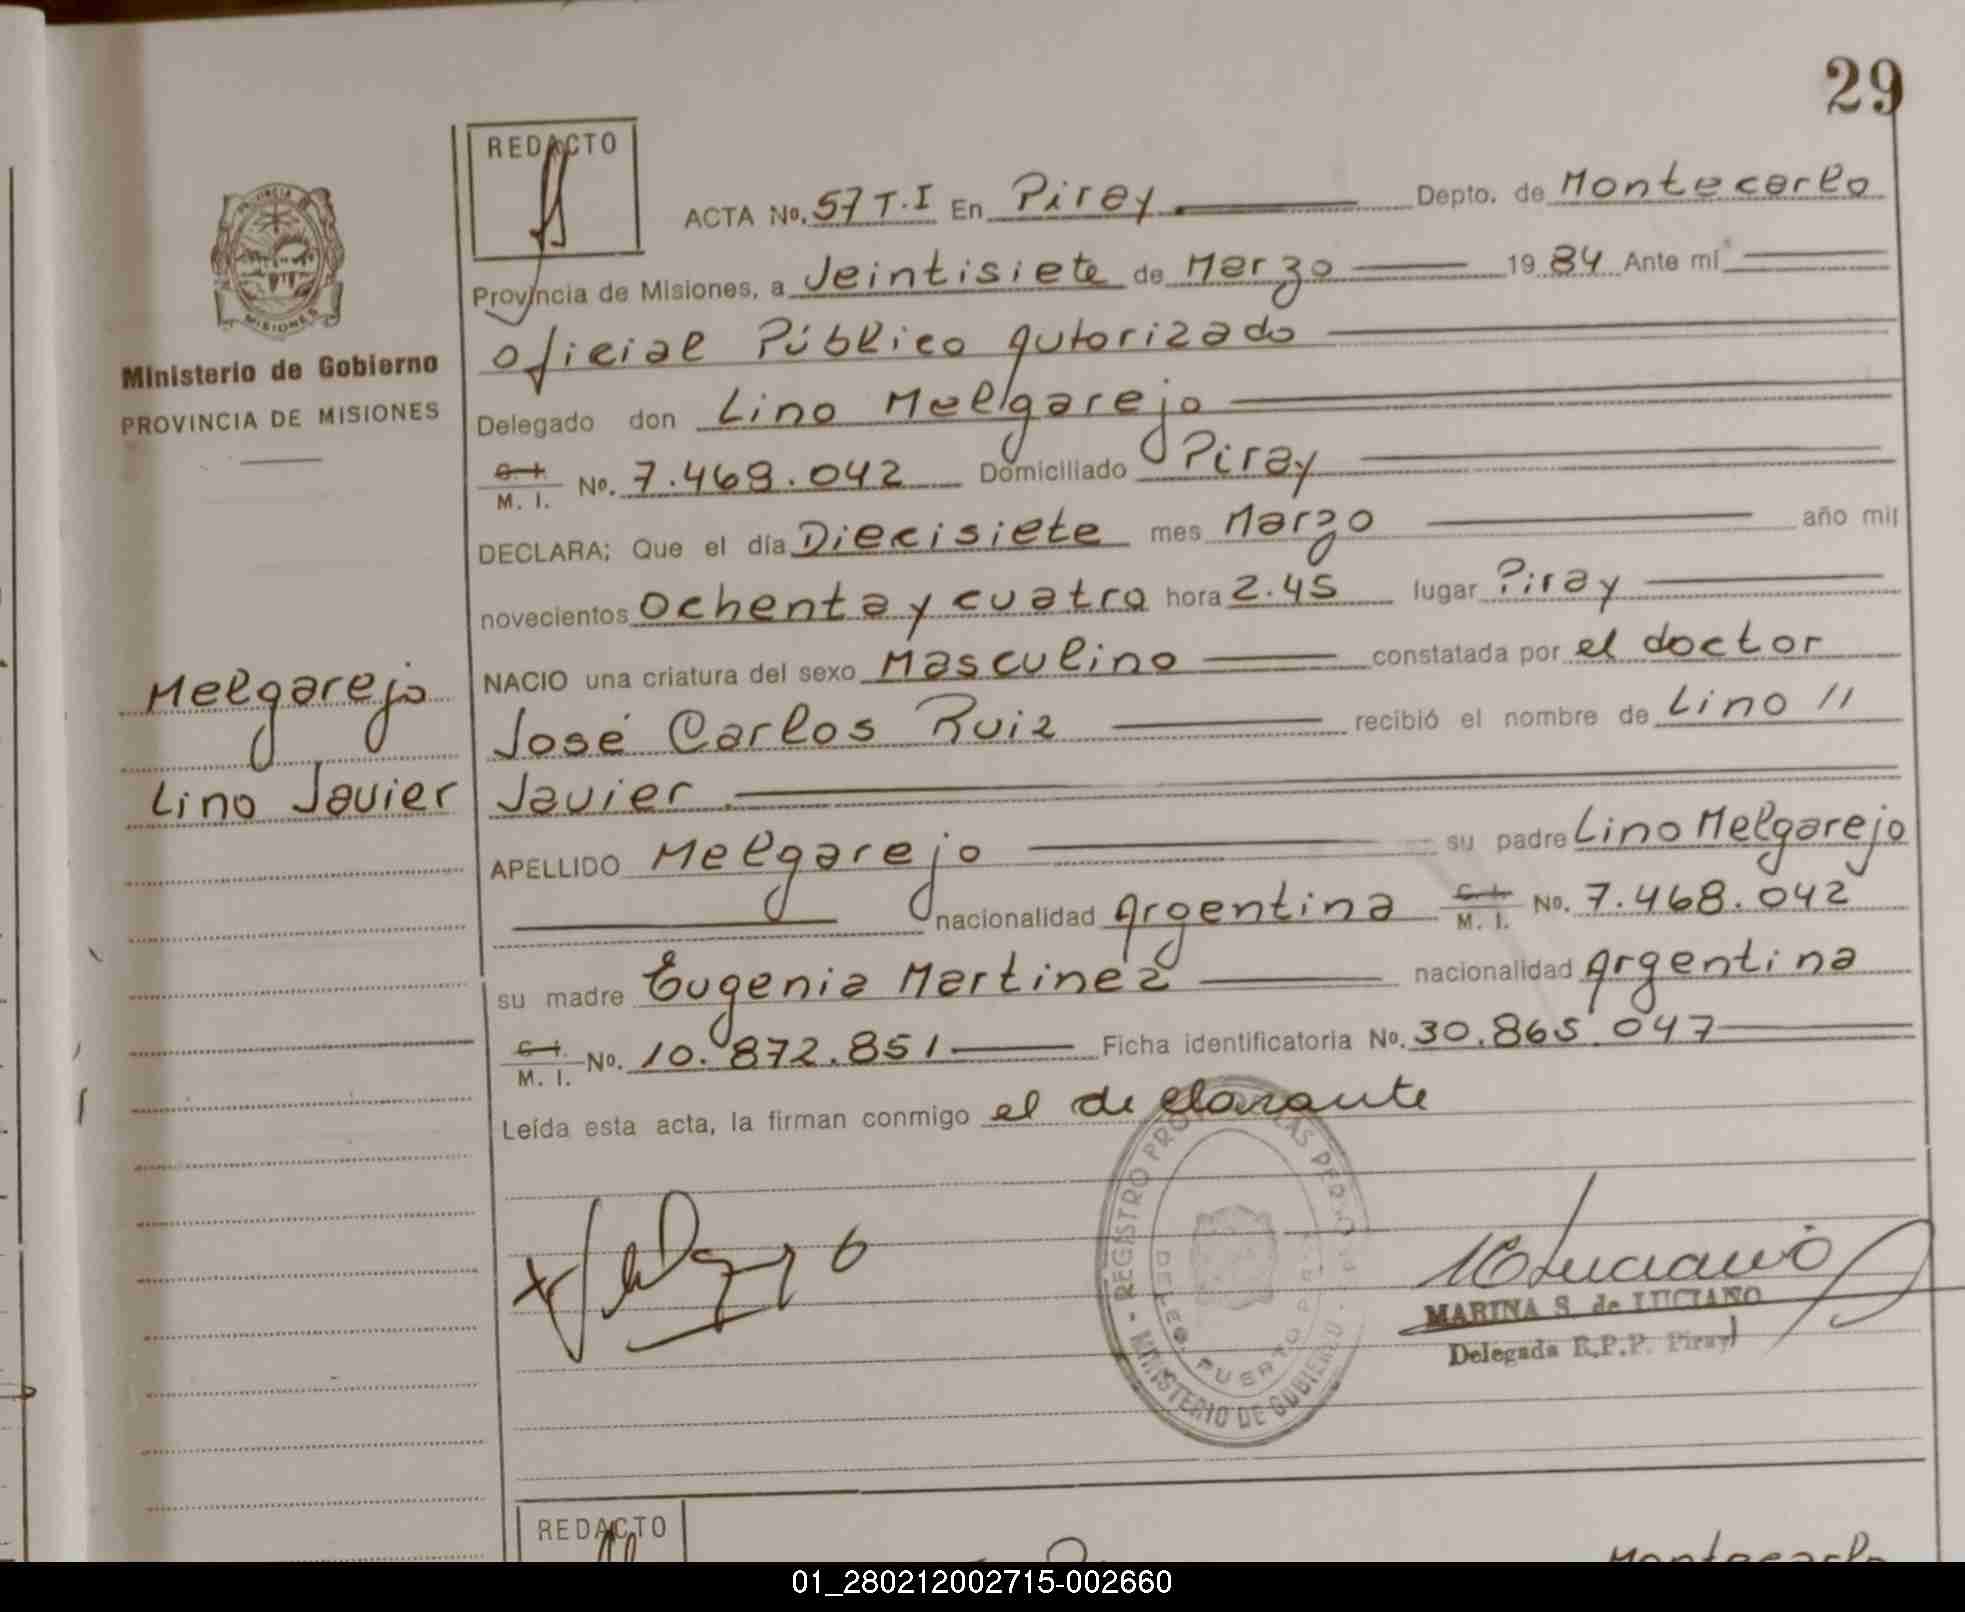 29
REDACTO
ACTA No. 57 T.I En Piray Depto. de Montecarlo
Provincia de Misiones, a Veintisiete de Marzo 1984 Ante mí
oficial Público autorizado
Delegado don Lino Melgarejo
C. I. M. I. No. 7.468.042 Domiciliado Piray
DECLARA; Que el día Diecisiete mes Marzo año mil
novecientos Ochenta y cuatro hora 2.45 lugar Piray
NACIO una criatura del sexo Masculino constatada por el doctor
José Carlos Ruiz recibió el nombre de Lino //
Javier
APELLIDO Melgarejo su padre Lino Melgarejo
nacionalidad Argentina C. I. M. I. No. 7.468.042
su madre Eugenia Martinez nacionalidad Argentina
C. I. M. I. No. 10.872.851 Ficha identificatoria No. 30.865.047
Leída esta acta, la firman conmigo el declarante
PROVINCIA
MISIONES
Ministerio de Gobierno
PROVINCIA DE MISIONES
Melgarejo
Lino Javier
REGISTRO PROV. LAS PERSONAS
MINISTERIO DE GOBIERNO
DELEG. PUERTO PIRAY
MLuciano
MARINA S. de LUCIANO
Delegada R.P.P. Piray
REDACTO
Montecarlo
01_280212002715-002660